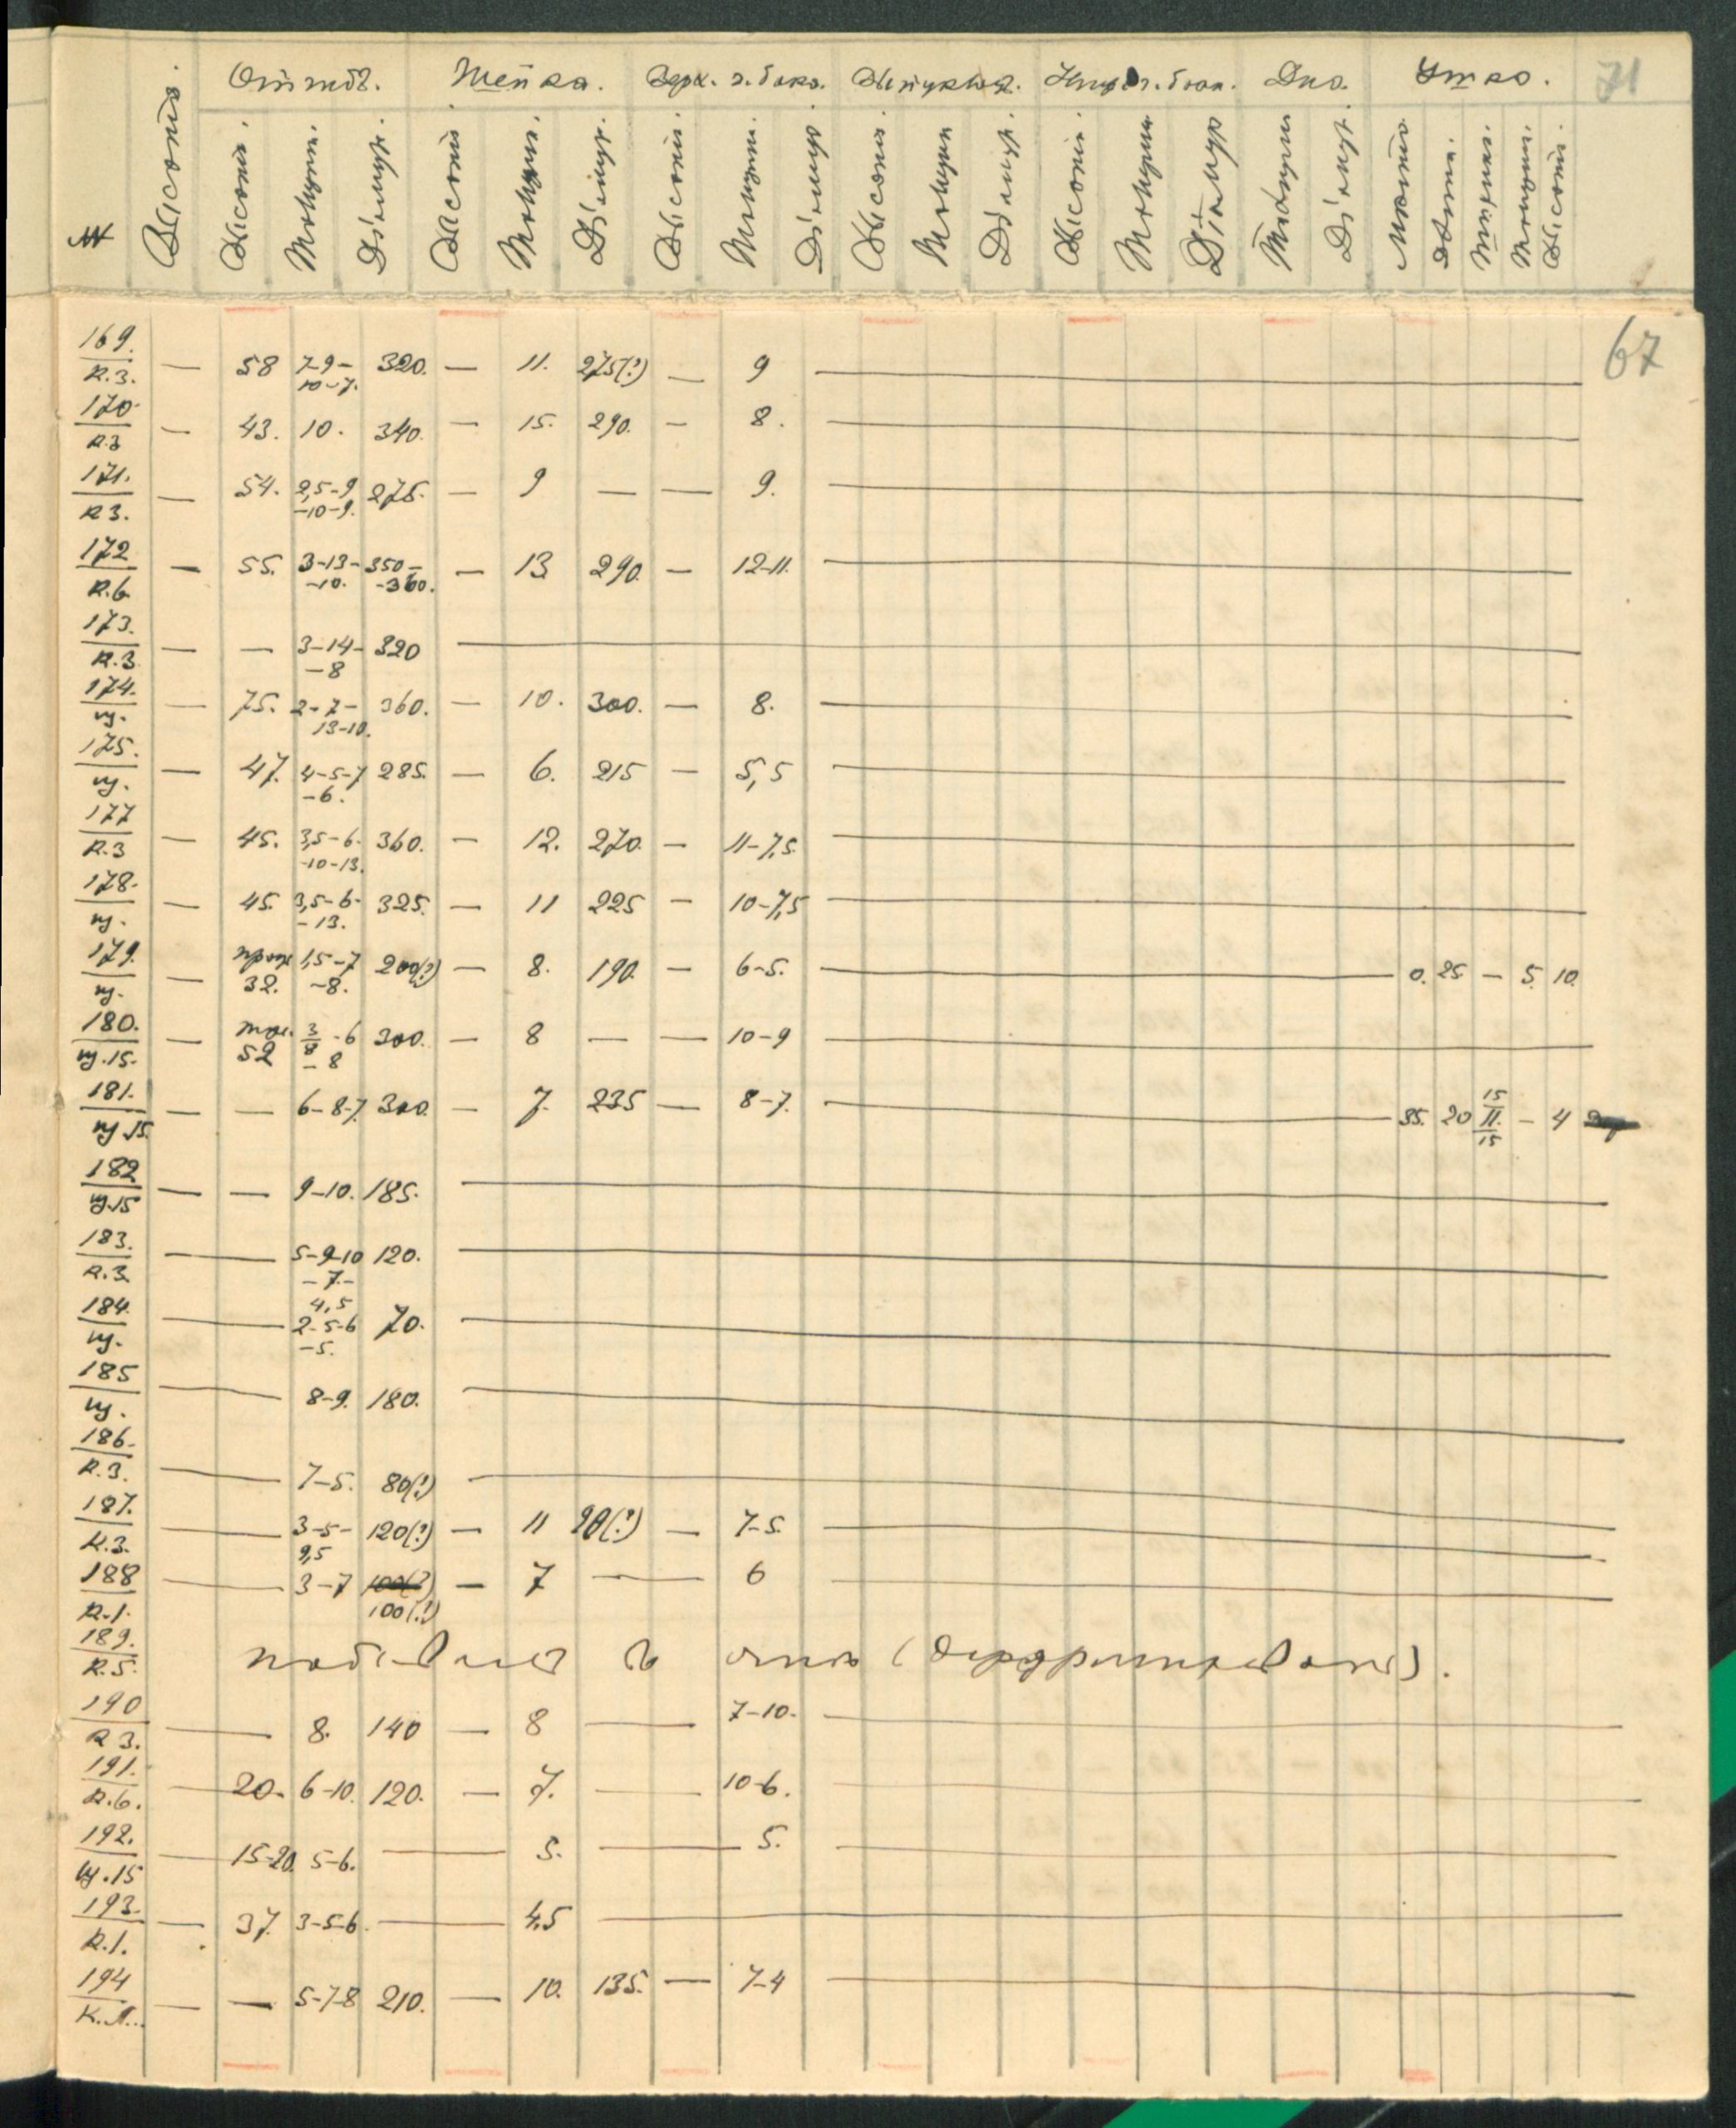 Шейка. Верх. ч. бока. Дно. Ушко. 71
№ Высота. Высота. Толщин. Діаметр. Высота Толщин. Діаметр. Высота. Толщин. Діаметр Высота. Толщин Діаметр. Высота. Толщин Діаметр Толщин Діаметр. Длина. Ширина. Толщин. Высота.
67
169. — 58 7-9- 320. — 11. 275(?) — 9 —
R.3. 10-7.
170. — 43. 10. 340. — 15. 290. — 8. —
R.3
171. — 54. 2,5-9 275. — 9 — — 9. —
R3. -10-9.
172 — 55. 3-13- 350- — 13 290. — 12-11. —
R.6 -10. -360.
173. — — 3-14- 320 —
R.3 -8
174. — 75. 2-7- 360. — 10. 300. — 8. —
щ. 13-10.
175. — 47. 4-5-7 285. — 6. 215 — 5,5 —
щ. -6.
177 — 45. 3,5-6- 360. — 12. 270. — 11-7,5. —
R.3 -10-13.
178. — 45. 3,5-6- 325. — 11 225 — 10-7,5 —
щ. -13.
179. — 1,5-7 200(?) — 8. 190. — 6-5. — 0. 25. — 5. 10.
щ. 32. -8.
180. — 3/8 -6 300. — 8 — — 10-9 —
щ.15. 52 -8
181. — — 6-8-7. 300. — 7. 235 — 8-7. — 35. 20 15/11./15 — 4
щ.15.
182 — — 9-10. 185. —
щ.15
183. — 5-9-10 120. —
R.3. -7-
4,5
184. — 2-5-6 70. —
щ. -5.
185 — 8-9. 180. —
щ.
186. — 7-5. 80(?) —
R.3.
187. — 3-5- 120(?) — 11 90(?) — 7-5. —
R.3. 9,5
188 — 3-7 100(?) — 7 — 6 —
R.1. 100(?)
189.
R.5.
190 — 8. 140 — 8 — 7-10. —
R3.
191. — 20. 6-10. 120. — 7. — 10-6. —
R.6.
192. — 15-20. 5-6. — 5. — 5. —
щ.15
193. — 37. 3-5-6. — 4,5 —
R.1.
194 — — 5-7-8 210. — 10. 135. — 7-4 —
К.Л.